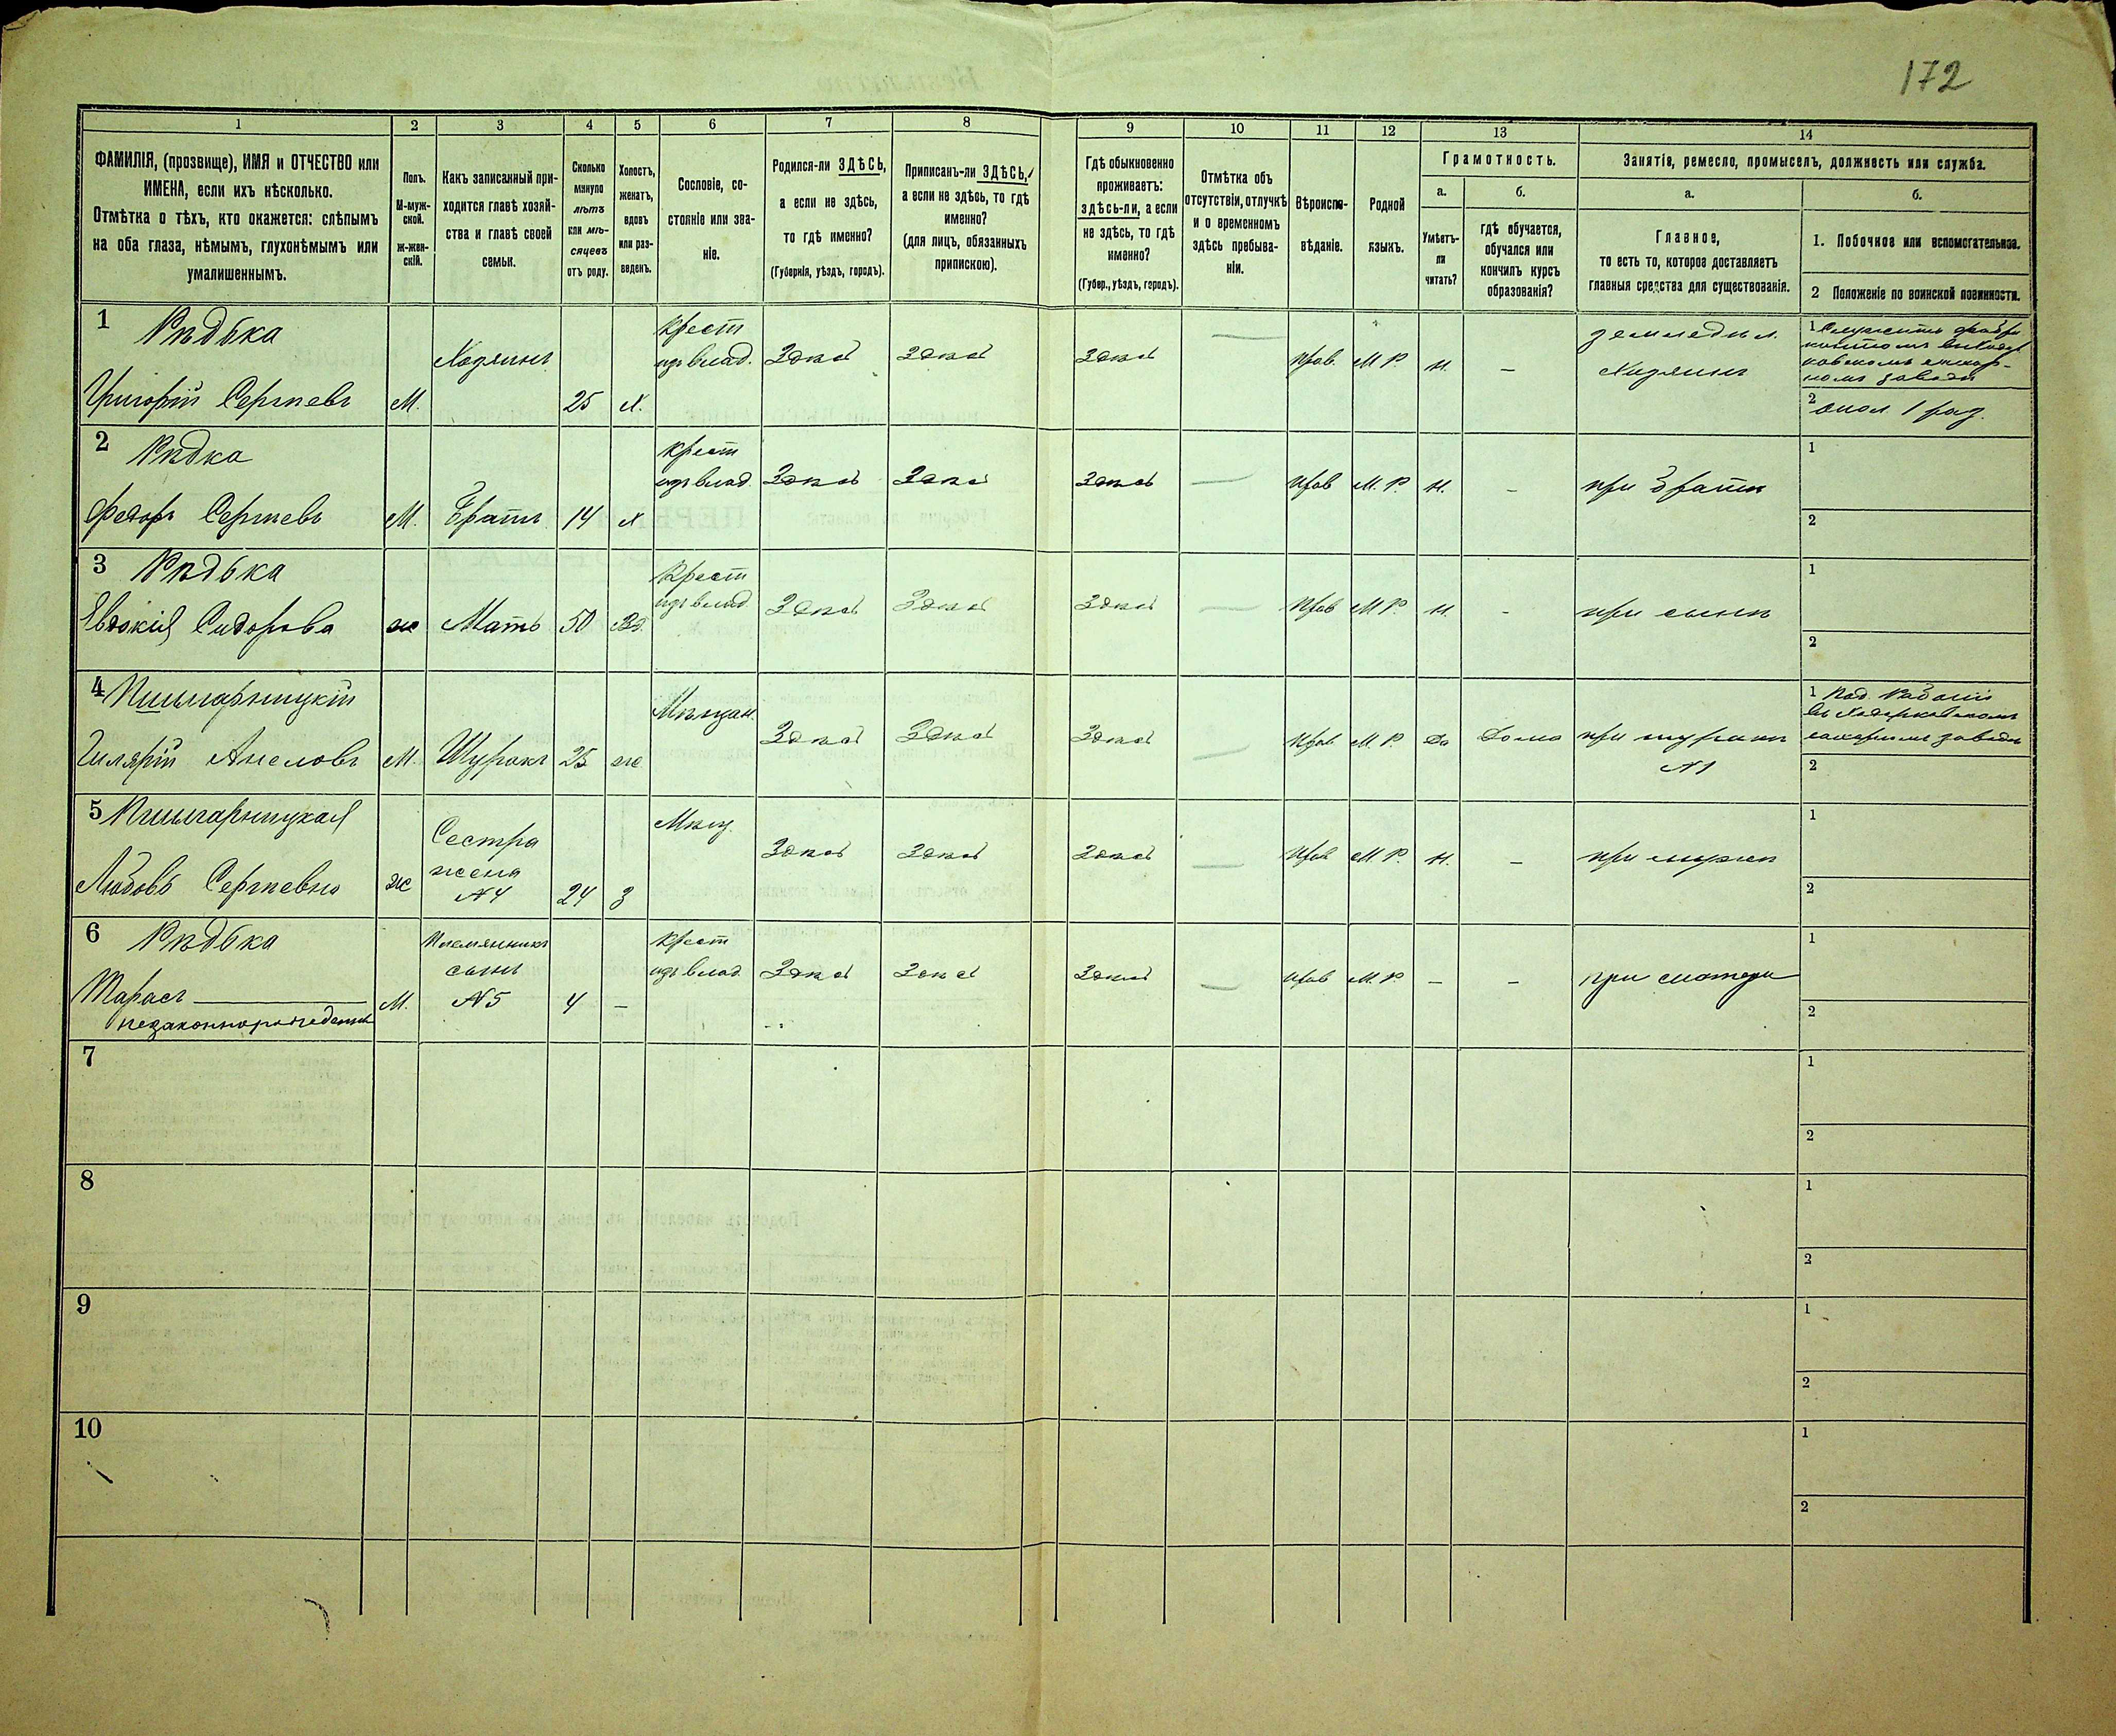 172
1 2 3 4 5 6 7 8 9 10 11 12 13 14
ФАМИЛІЯ, (прозвище), ИМЯ и ОТЧЕСТВО или
ИМЕНА, если ихъ нѣсколько.
Отмѣтка о тѣхъ, кто окажется: слѣпымъ
на оба глаза, нѣмымъ, глухонѣмымъ или
умалишеннымъ.
Полъ.
М-муж-
ской.
ж-жен-
скій.
Какъ записанный при-
ходится главѣ хозяй-
ства и главѣ своей
семьи.
Сколько
минуло
лѣтъ
или мѣ-
сяцевъ
отъ роду.
Холостъ,
женатъ,
вдовъ
или раз-
веденъ.
Сословіе, со-
стояніе или зва-
ніе.
Родился-ли ЗДѢСЬ,
а если не здѣсь,
то гдѣ именно?
(Губернія, уѣздъ, городъ).
Приписанъ-ли ЗДѢСЬ,
а если не здѣсь, то гдѣ
именно?
(для лицъ, обязанныхъ
припискою).
Гдѣ обыкновенно
проживаетъ:
здѣсь-ли, а если
не здѣсь, то гдѣ
именно?
(Губер., уѣздъ, городъ).
Отмѣтка объ
отсутствіи, отлучкѣ
и о временномъ
здѣсь пребыва-
ніи.
Вѣроиспо-
вѣданіе.
Родной
языкъ.
Грамотность.
а.
Умѣетъ-
ли
читать?
б.
гдѣ обучается,
обучался или
кончилъ курсъ
образованія?
Занятіе, ремесло, промыселъ, должность или служба.
а.
Главное,
то есть то, которое доставляетъ
главныя средства для существованія.
б.
1. Побочное или вспомогательное.
2 Положеніе по воинской повинности.
1 Рѣдька
Григорій Сергѣевъ
М.
Хозяинъ
25
Х.
Крест
изъ влад.
Здѣсь
Здѣсь
Здѣсь
—
Прав.
М. Р.
Н.
—
земледѣл.
Хозяинъ
1
заводѣ
2 1 раз.
2 Рѣдка
Федоръ Сергѣевъ
М.
Братъ
14
х
Крест
изъ влад
Здѣсь
Здѣсь
Здѣсь
—
Прав
М. Р.
Н.
—
при братѣ
1
2
3 Рѣдька
Евдокія Сидорова
ж
Мать
50
Вд.
Крест
изъ влад
Здѣсь
Здѣсь
Здѣсь
—
Прав
М. Р.
Н.
-
при сынѣ
1
2
4
М.
Шуракъ
25
ж
Мѣщан.
Здѣсь
Здѣсь
Здѣсь
—
Прав
М. Р.
Да
Дома
при шуракѣ
№1
1
сахарномъ заводѣ
2
5
Любовь Сергѣевна
ж
Сестра
жена
№4
24
З
Мѣщ.
Здѣсь
Здѣсь
Здѣсь
—
Прав
М. Р.
Н.
—
при мужѣ
1
2
6 Рѣдька
Тарасъ ———
незаконнорожденный
М.
Племянникъ
сынъ
№5
4
—
Крест
изъ влад.
Здѣсь
Здѣсь
Здѣсь
—
Прав
М. Р.
—
—
при матери
1
2
7
1
2
8
1
2
9
1
2
10
1
2